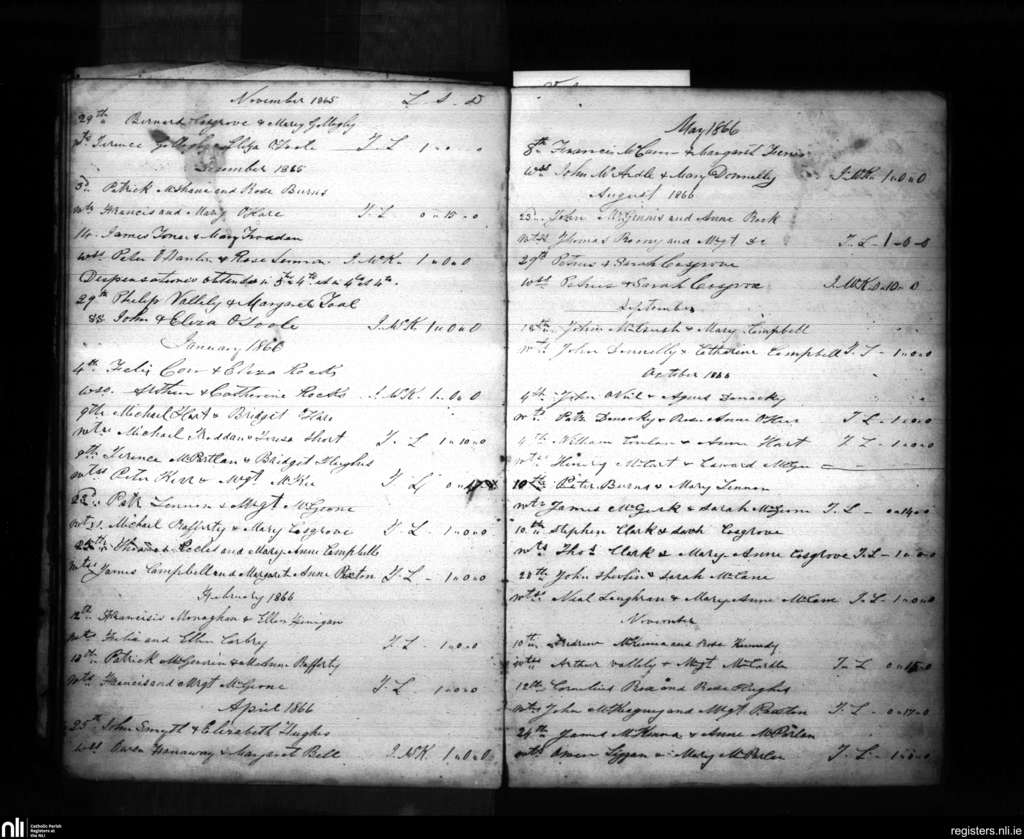 November 1865 L - S - D
29th Bernard Cosgrove & Mary Gollogly
Ts Terence Gollogly & Eliza O'Toole T- L 1 - 0 - 0
December 1865
3d. Patrick McShane and Rose Burns
wts Francis and Mary O'Hare T. L 0 - 15 - 0
14 James Jones & Mary
wss. Peter & Rose Lennon J. McK. 1 - 0 - 0
Dispensation in 3rd & 4th and in 4th & 4th.
29th Philip Vallely & Margaret Toal
ss John & Eliza O'Toole J. McK 1 - 0 - 0
January 1866
4th Felix Corr & Eliza Rocks
wss. Arthur & Catherine Rocks J. McK. 1 - 0 - 0
9th Michael Hart & Bridget
wtss Michael & Teresa Short T- L 1 - 10 - 0
9th. Terence McPartlan & Bridget Hughes
wtss Peter Kerr & Mgt McKee T- L 0 - 17
22d. Patk Lennon & Mrgt McGeone
wtss. Michael Rafferty & Mary Cosgrove T- L - 1 - 0 - 0
Eccles and Mary Anne Campbell
wtss James Campbell and Margaret Anne T- L - 1 - 0 - 0
February 1866
12th Francis Monaghan & Ellen
wts Felix and Ellen Corbry T. L 1 - 0 - 0
12th. Patrick & Anne Rafferty
wts Francis and Mrgt McGeone T- L - 1 - 0 - 0
April 1866
25th John Smyth & Elizabeth Hughes
wss Owen Hanaway & Margaret Bell J. McK. 1 - 0 - 0
May 1866
8th Francis McCann & Margaret
wss John McArdle & Mary Donnelly J. McK. 1 - 0 - 0
August 1866
25. John McGinnis and Anne Rock
wtss Thomas Rooney and Mrgt do T. L - 1 - 0 - 0
29th Petrus & Sarah Cosgrove
wss Petrus & Sarah Cosgrove J. McK 0 - 10 - 0
September
18th. John & Mary Campbell
wts John Donnelly & Catherine Campbell T. L - 1 - 0 - 0
October 1866
4th John O'Neil & Agnes
wts Patk & Rose Anne T- L - 1 - 0 - 0
4th William Conlan & Anne Hart T- L - 1 - 0 - 0
wts Henry & Edward
10th Peter Burns & Mary Lennon
wts James McGurk & Sarah T- L - 0 - 14 - 0
10th Stephen Clark & Cosgrove
wts Thos Clark & Mary Anne Cosgrove T. L - 1 - 0 - 0
28th John & Sarah McCane
wtss Neal Loughran & Mary Anne McCane T. L - 1 - 0 - 0
November
10th Andrew and Rose Kennedy
wtss Arthur Vallely & Mrgt McCardle T- L - 0
12th Cornelius and Rose Hughes
wts John and Mrgt T- L - 0 - 17 - 0
24th James McKenna & Anne McParlan
wts Owen & Mary McParlan T- L - 1 - 0 - 0
nli Catholic Parish
Registers at
the NLI
registers.nli.ie